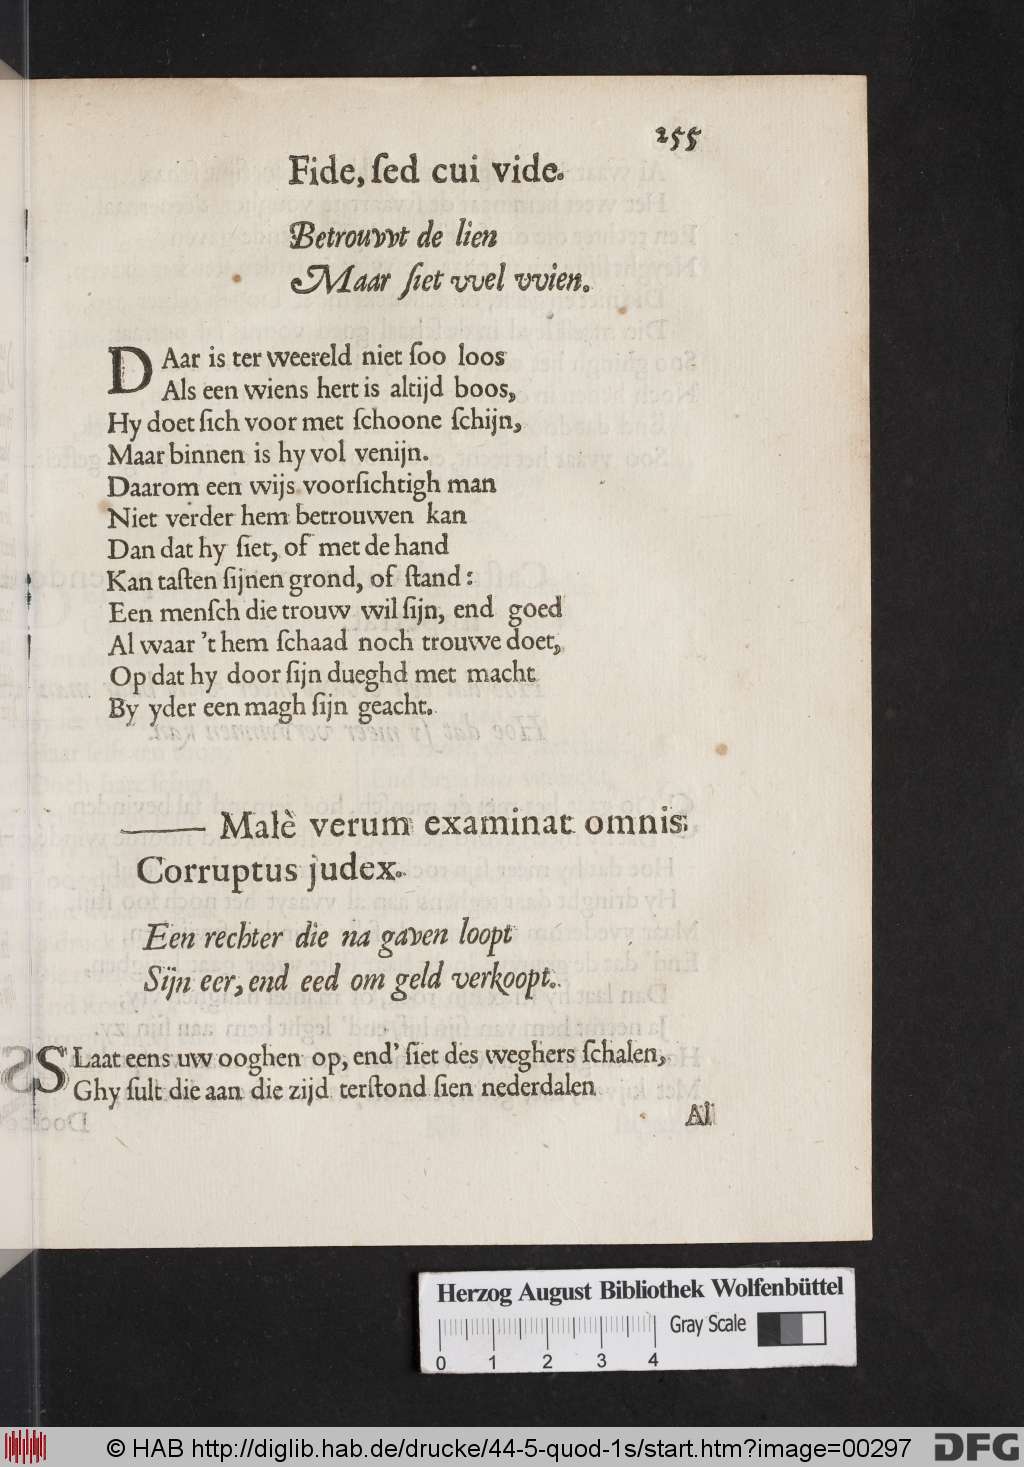 255
Fide, ſed cui vide.
Betrouvvt de lien
Maar ſiet vvel vvien.
DAar is ter weereld niet ſoo loos
Als een wiens hert is altijd boos,
Hy doet ſich voor met ſchoone ſchijn,
Maar binnen is hy vol venijn.
Daarom een wijs voorſichtigh man
Niet verder hem betrouwen kan
Dan dat hy ſiet, of met de hand
Kan taſten ſijnen grond, of ſtand:
Een menſch die trouw wil ſijn, end goed
Al waar 't hem ſchaad noch trouwe doet,
Op dat hy door ſijn dueghd met macht
By yder een magh ſijn geacht.
—— Malè verum examinat omnis
Corruptus judex.
Een rechter die na gaven loopt
Sijn eer, end eed om geld verkoopt.
SLaat eens uw ooghen op, end' ſiet des weghers ſchalen,
Ghy ſult die aan die zijd terſtond ſien nederdalen
Al
Herzog August Bibliothek Wolfenbüttel
Gray Scale
0 1 2 3 4
© HAB http://diglib.hab.de/drucke/44-5-quod-1s/start.htm?image=00297
DFG